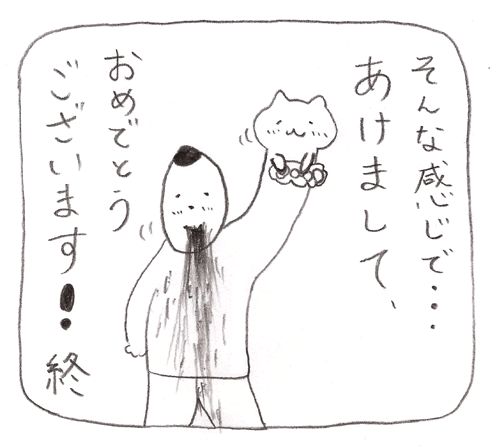 そんな感じで・・・
あけまして、
おめでとう
ございます!
終